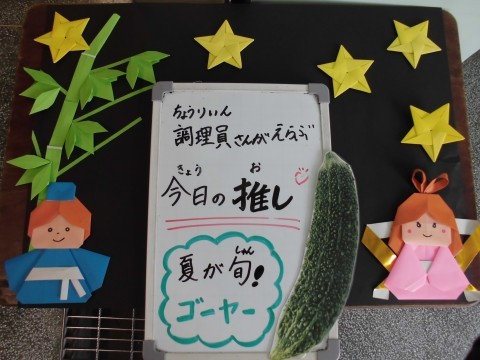 ちょうりいん
調理員さんがえらぶ
きょう お
今日の推し
しゅん
夏が旬!
ゴーヤー